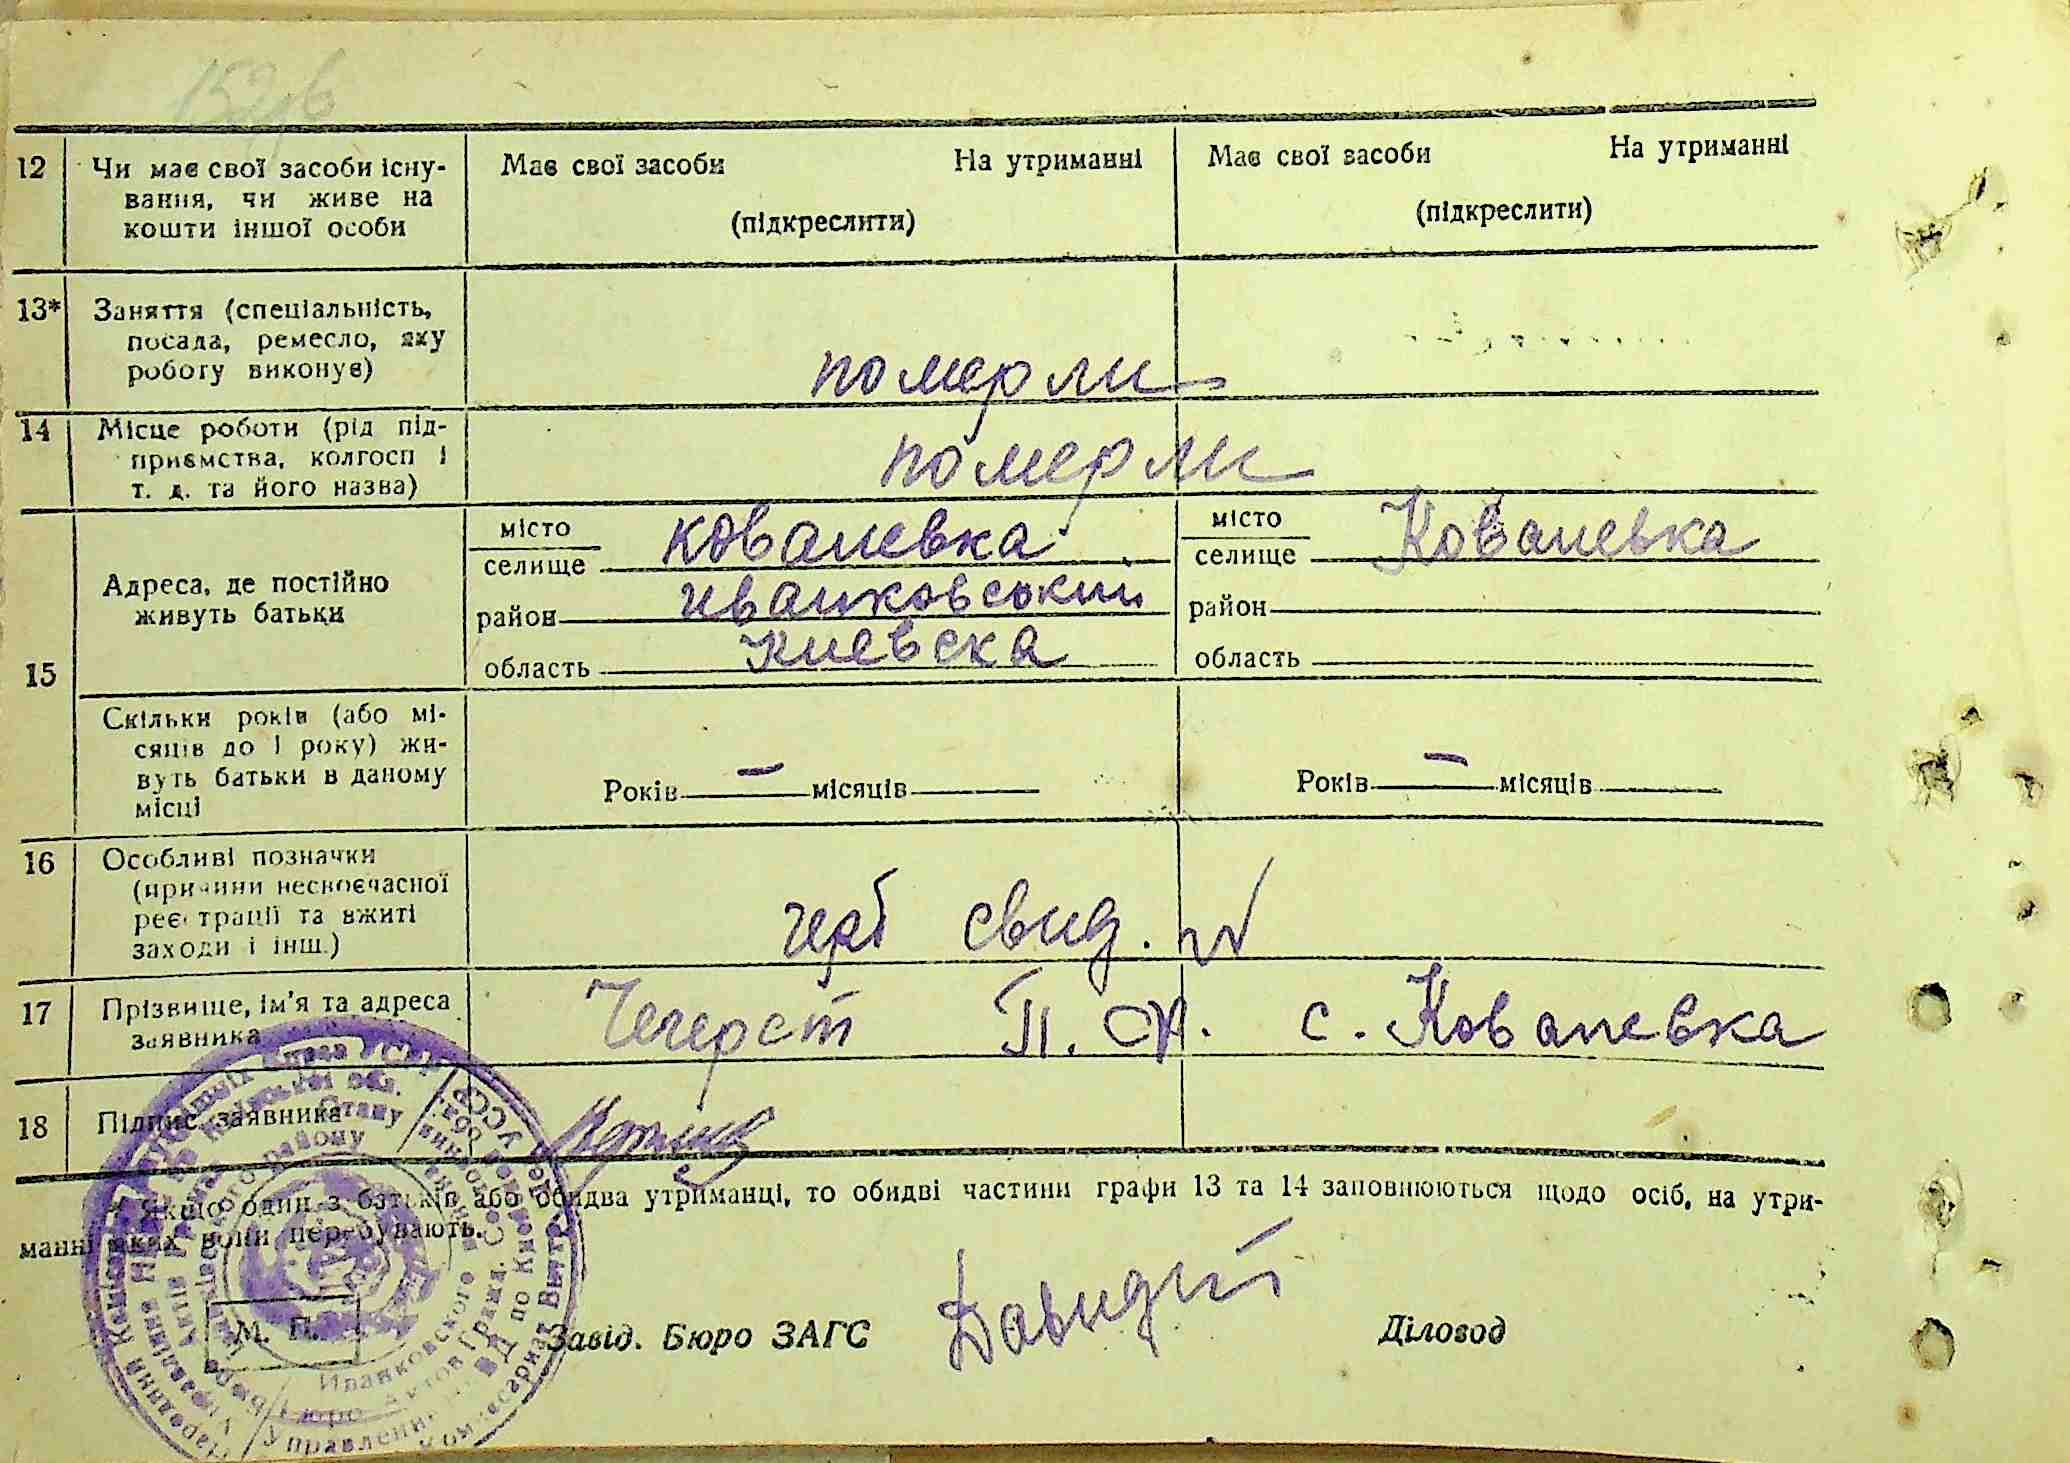 12 Чи має свої засоби існу-
вання, чи живе на
кошти іншої особи
Має свої засоби На утриманні
(підкреслити)
Має свої засоби На утриманні
(підкреслити)
13* Заняття (спеціальність,
посада, ремесло, яку
роботу виконує)
померли
14 Місце роботи (рід під-
приємства, колгосп і
т. д. та його назва)
померли
15
Адреса, де постійно
живуть батьки
місто
селище Ковалевка
район Иванковський
область Киевска
місто
селище Ковалевка
район
область
Скільки років (або мі-
сяців до 1 року) жи-
вуть батьки в даному
місці
Років — місяців
Років — місяців
16 Особливі позначки
(причини несвоєчасної
реєстрації та вжиті
заходи і інш.)
герб свид.
17 Прізвище, ім'я та адреса
заявника
с. Ковалевка
18 Підпис заявника
* Якщо один з батьків або обидва утриманці, то обидві частини графи 13 та 14 заповнюються щодо осіб, на утри-
манні яких вони перебувають.
М. П.
Завід. Бюро ЗАГС
Діловод